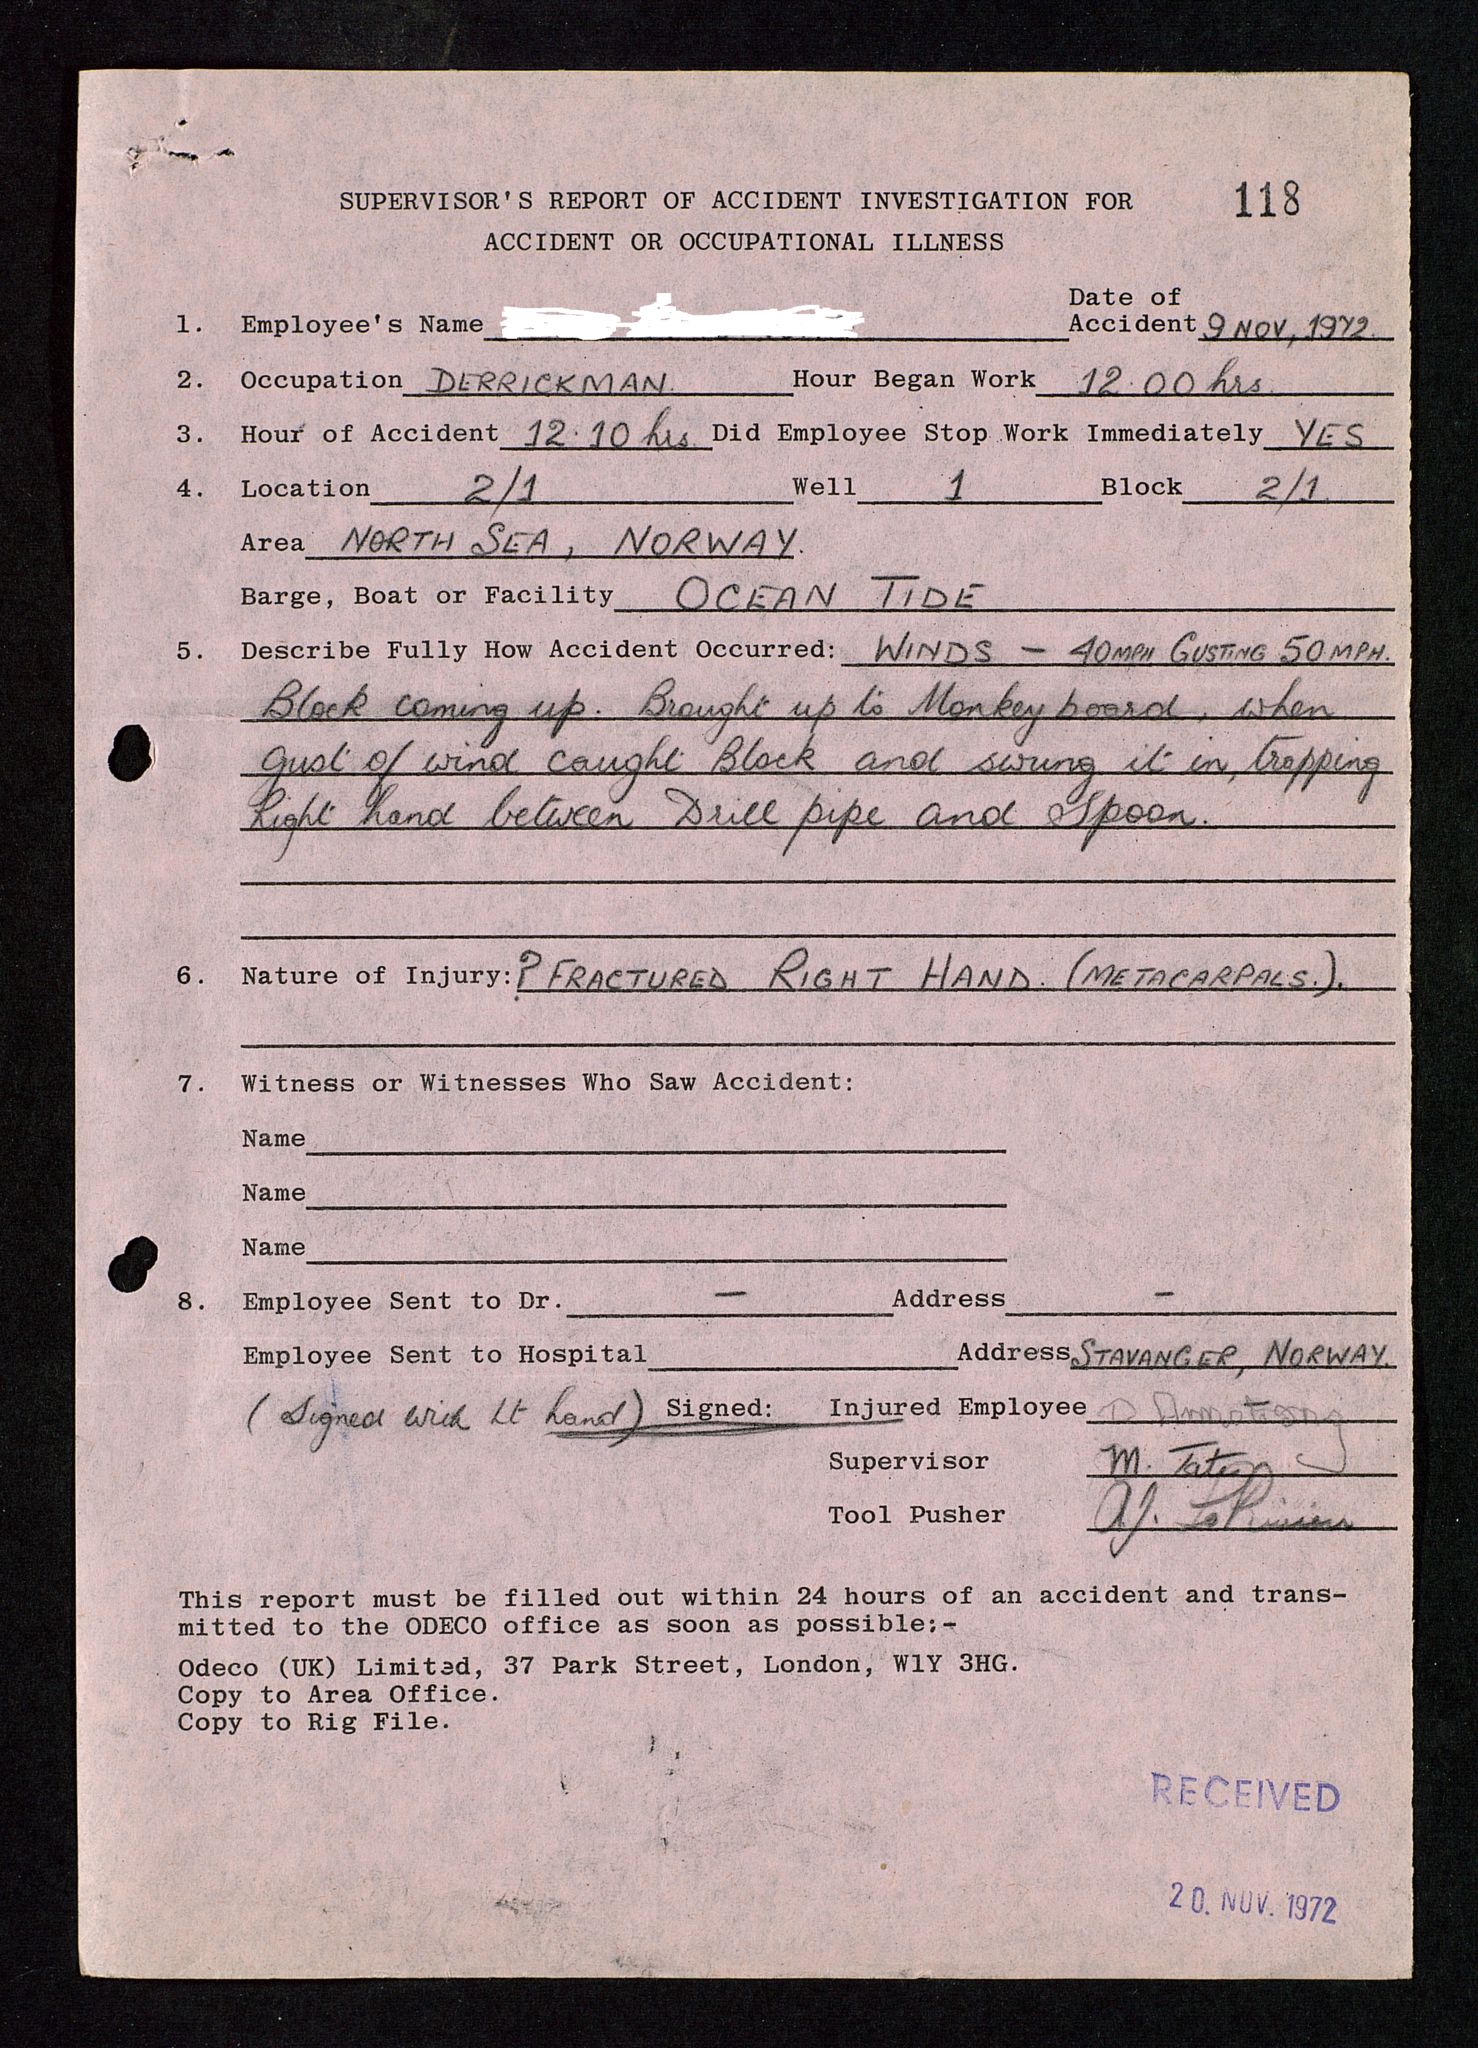 SUPERVISOR'S REPORT OF ACCIDENT INVESTIGATION FOR 118
ACCIDENT OR OCCUPATIONAL ILLNESS
Date of
1. Employee's Name Accident 9 NOV, 1972.
2. Occupation DERRICKMAN. Hour Began Work 12.00 hrs.
3. Hour of Accident 12.10 hrs Did Employee Stop Work Immediately YES
4. Location 2/1 Well 1 Block 2/1.
Area NORTH SEA, NORWAY.
Barge, Boat or Facility OCEAN TIDE
5. Describe Fully How Accident Occurred: WINDS - 40MPH GUSTING 50MPH.
Block coming up. Brought up to Monkey board, when
gust of wind caught Block and swung it in, trapping
Right hand between Drill pipe and Spoon.
6. Nature of Injury: ? FRACTURED RIGHT HAND. (METACARPALS.).
7. Witness or Witnesses Who Saw Accident:
Name
Name
Name
8. Employee Sent to Dr. - Address -
Employee Sent to Hospital Address STAVANGER, NORWAY.
(Signed with Lt hand) Signed: Injured Employee D Armstrong
Supervisor M.
Tool Pusher A.J.
This report must be filled out within 24 hours of an accident and trans-
mitted to the ODECO office as soon as possible:-
Odeco (UK) Limited, 37 Park Street, London, W1Y 3HG.
Copy to Area Office.
Copy to Rig File.
RECEIVED
20. NOV. 1972